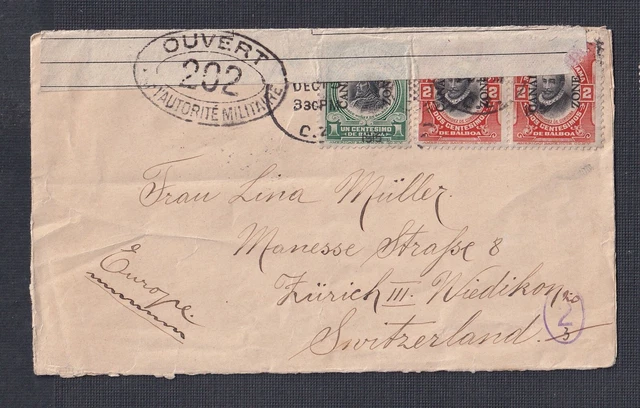 OUVERT
202
L'AUTORITÉ MILITAIRE
DEC
330P
C.Z.
CANAL ZONE
1 UN CENTESIMO 1
DE BALBOA
CANAL ZONE
2 2
DOS CENTESIMOS
DE BALBOA
CANAL ZONE
2 2
DOS CENTESIMOS
DE BALBOA
Frau Lina Müller.
Manesse Straße 8
Zürich III. Wiedikon
Switzerland.
Europe.
2